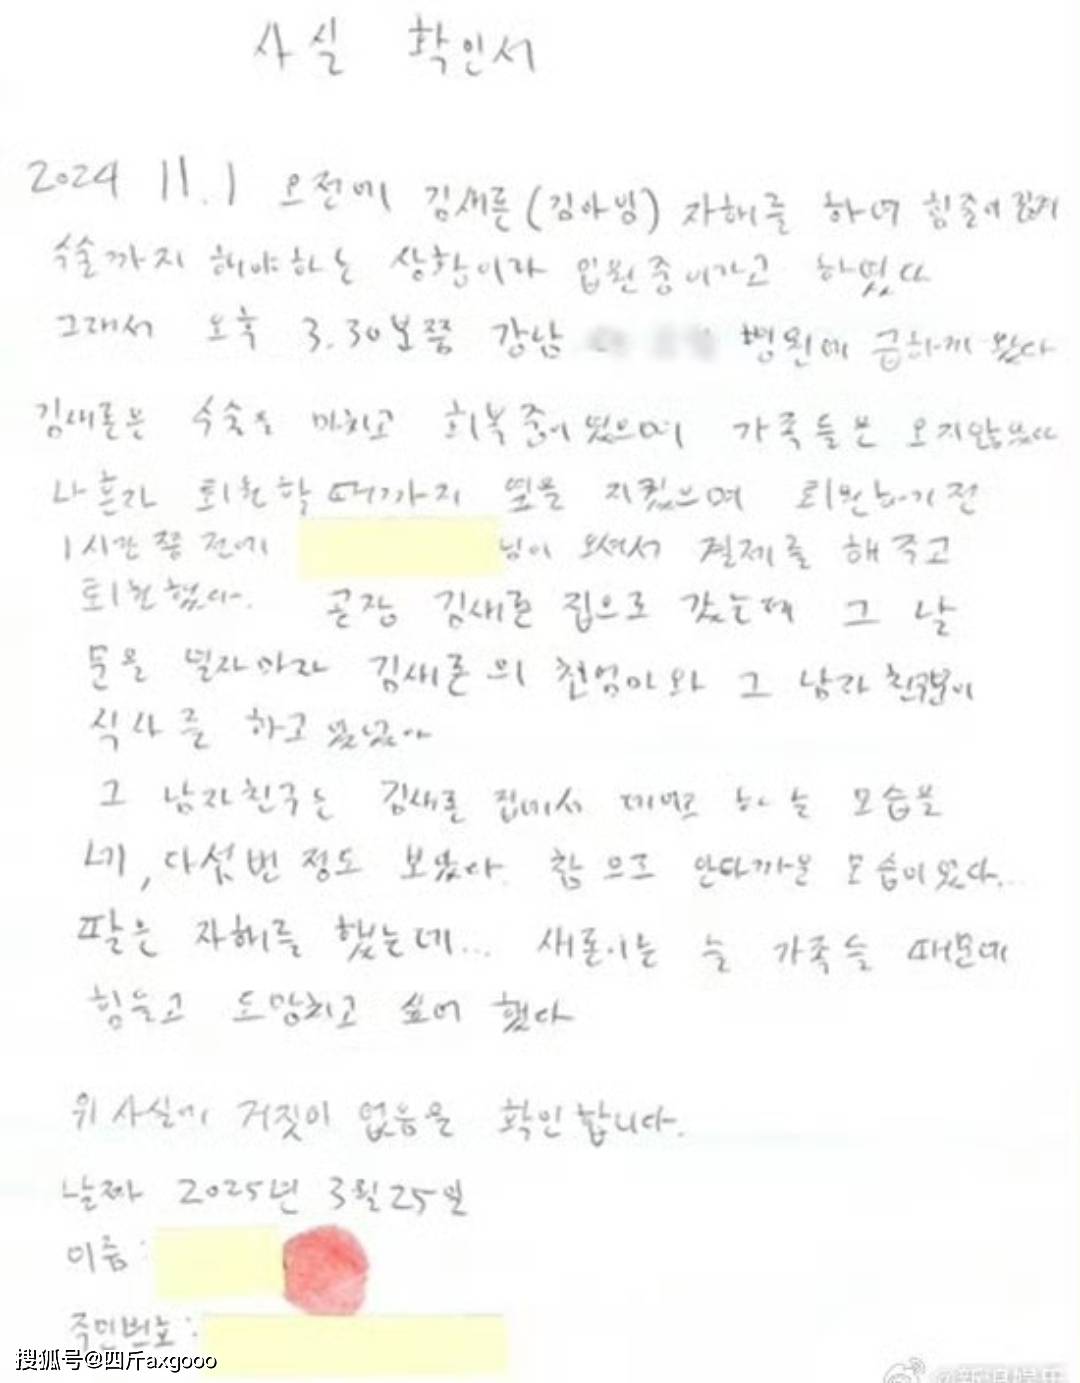 사실 확인서
2024 11.1 오전에 김새론(김아빙) 자해를 하여 힘줄이
수술까지 해야하는 상황이라 입원중이라고 하였다
그래서 오후 3.30분쯤 강남 병원에 급하게 왔다
김새론은 수술을 마치고 회복중이었으며 가족들은 오지않았다
나 혼자 퇴원할때까지 옆을 지켰으며 퇴원하기전
1시간쯤 전에 님이 오셔서 결제를 해주고
퇴원했다. 곧장 김새론 집으로 갔는데 그 날
문을 열자마자 김새론의 친엄마와 그 남자친구분이
식사를 하고 있었다
그 남자친구는 김새론 집에서 하는 모습을
네, 다섯번 정도 보았다. 참으로 안타까운 모습이었다...
팔은 자해를 했는데... 새론이는 늘 가족들 때문에
힘들고 도망치고 싶어 했다
위 사실에 거짓이 없음을 확인합니다.
날짜 2025년 3월25일
이름:
주민번호:
搜狐号@四斤axgooo
@新浪娱乐